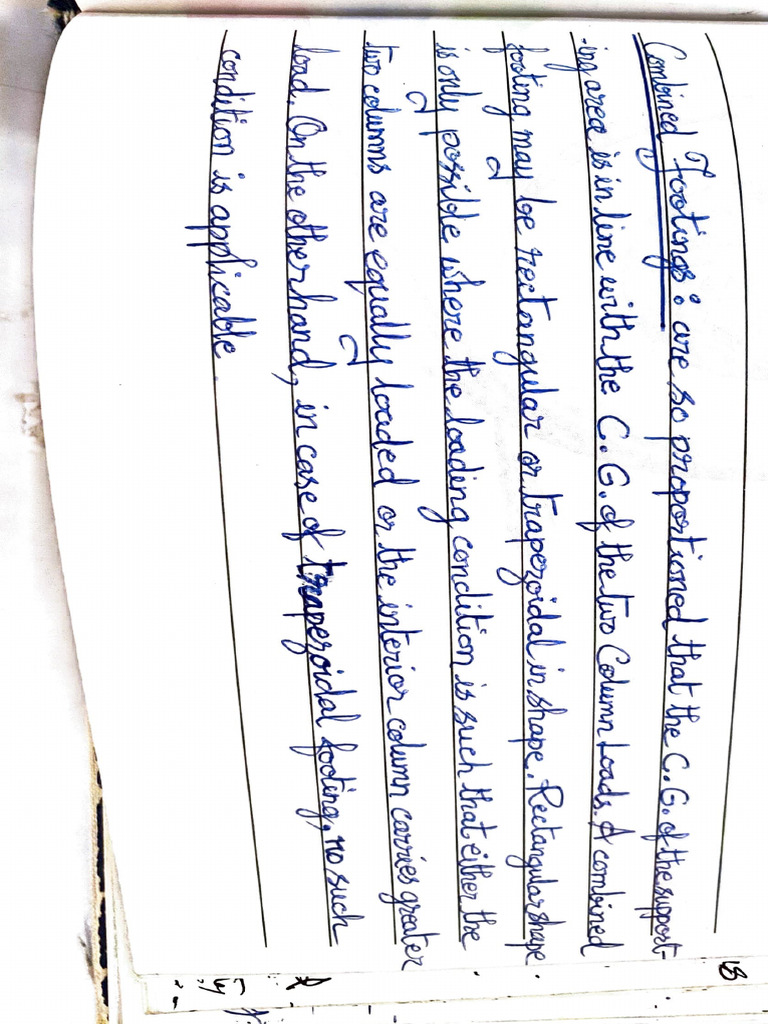 18
Combined Footings: are so proportioned that the C.G. of the support-
-ing area is in line with the C.G. of the two Column Loads. A combined
footing may be rectangular or trapezoidal in shape. Rectangular shape
is only possible where the loading condition is such that either the
two columns are equally loaded or the interior column carries greater
load. On the other hand, in case of trapezoidal footing, no such
condition is applicable.